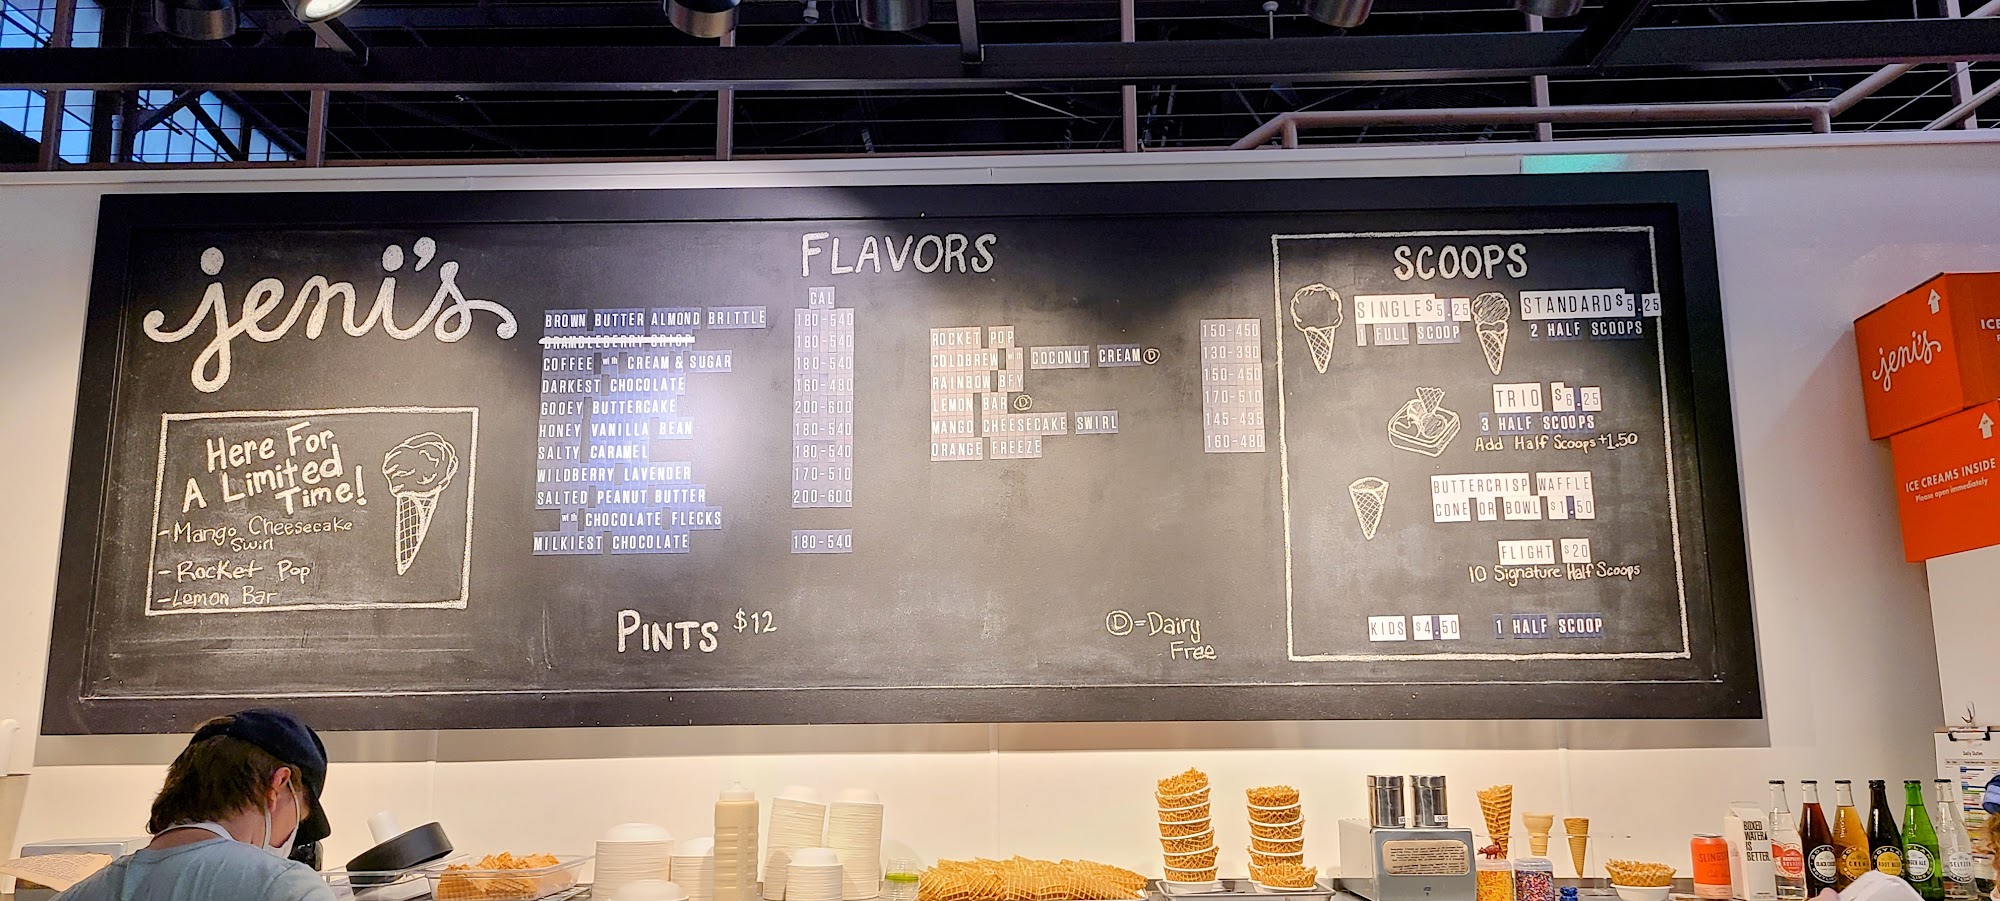 jeni's
Here For
A Limited
Time!
- Mango Cheesecake
Swirl
- Rocket Pop
- Lemon Bar
FLAVORS
CAL
BROWN BUTTER ALMOND BRITTLE 180-540
BRAMBLEBERRY CRISP 180-540
COFFEE with CREAM & SUGAR 180-540
DARKEST CHOCOLATE 160-480
GOOEY BUTTERCAKE 200-600
HONEY VANILLA BEAN 180-540
SALTY CARAMEL 180-540
WILDBERRY LAVENDER 170-510
SALTED PEANUT BUTTER 200-600
with CHOCOLATE FLECKS
MILKIEST CHOCOLATE 180-540
ROCKET POP 150-450
COLDBREW with COCONUT CREAM D 130-390
RAINBOW BFY 150-450
LEMON BAR D 170-510
MANGO CHEESECAKE SWIRL 145-435
ORANGE FREEZE 160-480
PINTS $12
D = Dairy
Free
SCOOPS
SINGLE $5.25
1 FULL SCOOP
STANDARD $5.25
2 HALF SCOOPS
TRIO $6.25
3 HALF SCOOPS
Add Half Scoops +1.50
BUTTERCRISP WAFFLE
CONE OR BOWL $1.50
FLIGHT $20
10 Signature Half Scoops
KIDS $4.50 1 HALF SCOOP
jeni's
ICE CREAMS INSIDE
Please open immediately
BOXED
WATER
IS
BETTER.